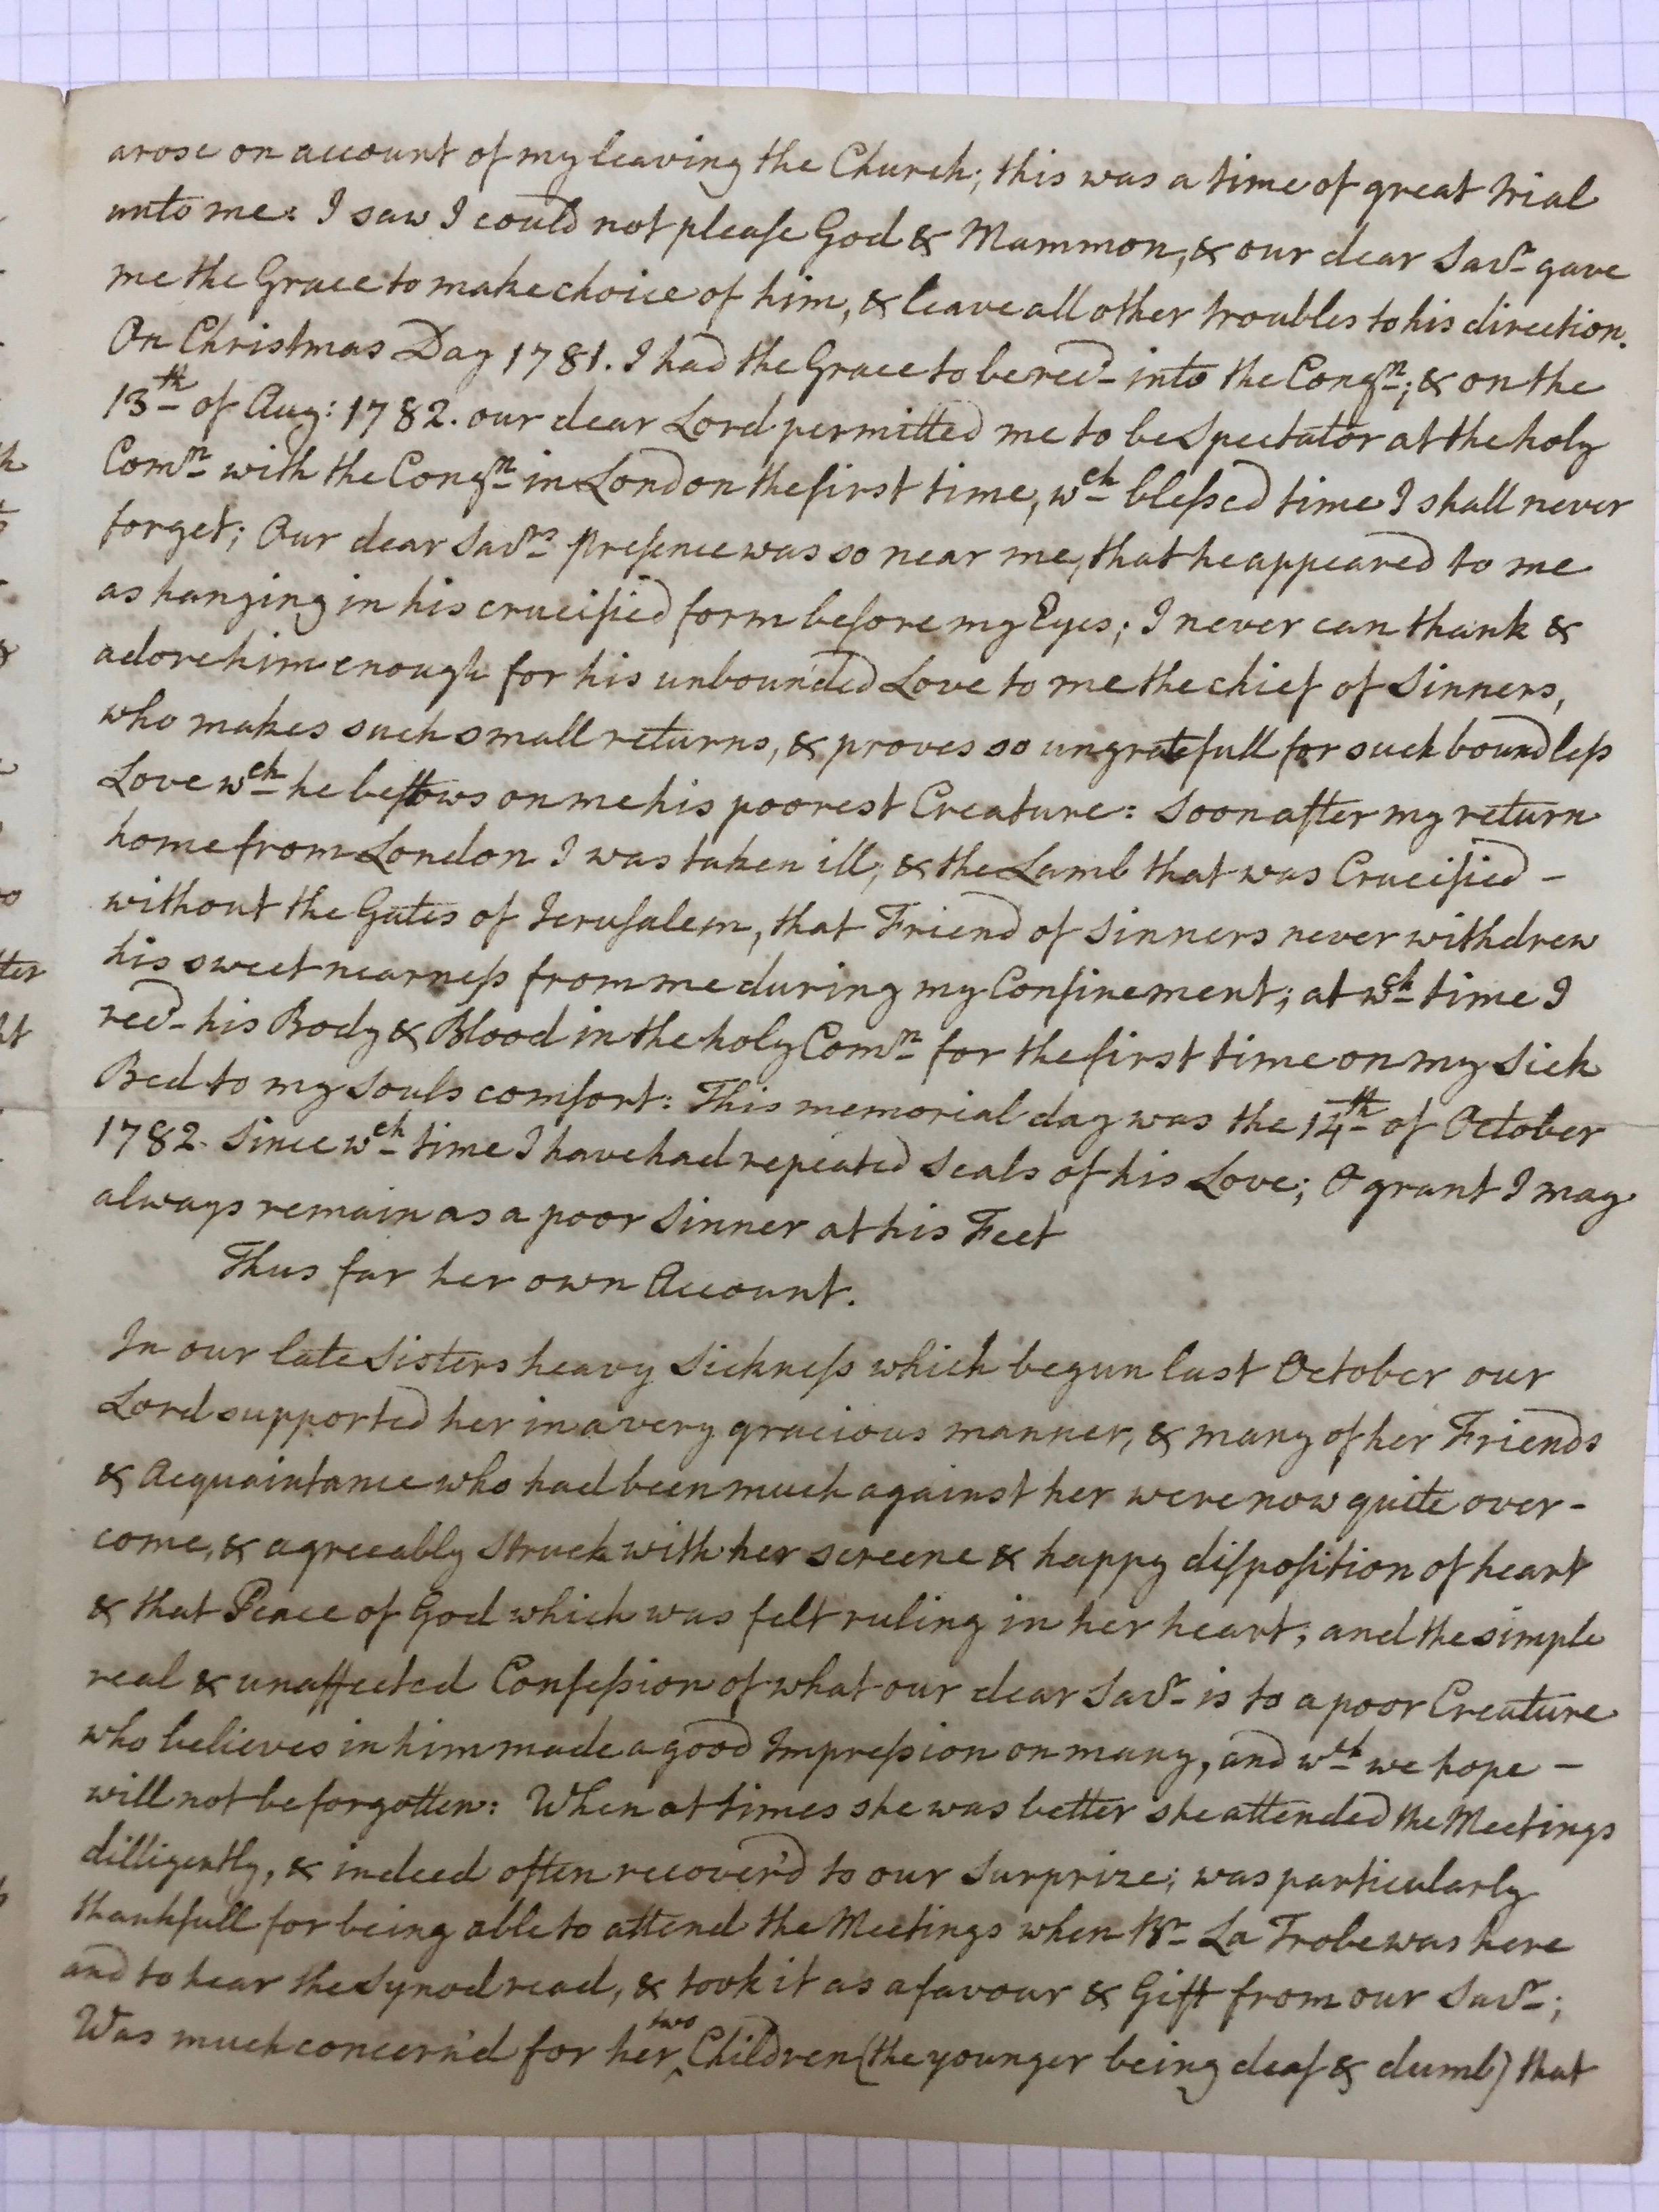 arose on account of my leaving the Church; this was a time of great trial
unto me: I saw I could not please God & Mammon, & our dear Savr. gave
me the Grace to make choice of him, & leave all other troubles to his direction.
On Christmas Day 1781. I had the Grace to be recd. into the Congn.; & on the
13th of Aug: 1782. our dear Lord permitted me to be Spectator at the holy
Comn. with the Congn. in London the first time, wch blessed time I shall never
forget; Our dear Savrs. Presence was so near me, that he appeared to me
as hanging in his crucified form before my Eyes; I never can thank &
adore him enough for his unbounded Love to me the chief of Sinners,
who makes such small returns, & proves so ungratefull for such boundless
Love wch he bestows on me his poorest Creature: Soon after my return
home from London I was taken ill, & the Lamb that was Crucified –
without the Gates of Jerusalem, that Friend of Sinners never withdrew
his sweet nearness from me during my Confinement; at wch time I
recd. his Body & Blood in the holy Comn. for the first time on my Sick
Bed to my Souls comfort: This memorial day was the 14th of October
1782. Since wch time I have had repeated Seals of his Love; O grant I may
always remain as a poor Sinner at his Feet
Thus far her own Account.
In our late Sisters heavy Sickness which begun last October our
Lord supported her in a very gracious manner, & many of her Friends
& Acquaintance who had been much against her were now quite over-
come, & agreeably struck with her screene & happy disposition of heart
& that Peace of God which was felt ruling in her heart; and the simple
real & unaffected Confession of what our dear Savr. is to a poor Creature
who believes in him made a good Impression on many, and wch we hope –
will not be forgotten: When at times she was better she attended the Meetings
dilligently, & indeed often recover'd to our Surprize; was particularly
thankfull for being able to attend the Meetings when Br. La Trobe was here
and to hear the Synod read, & took it as a favour & Gift from our Savr.;
Was much concern'd for her two Children (the younger being deaf & dumb) that